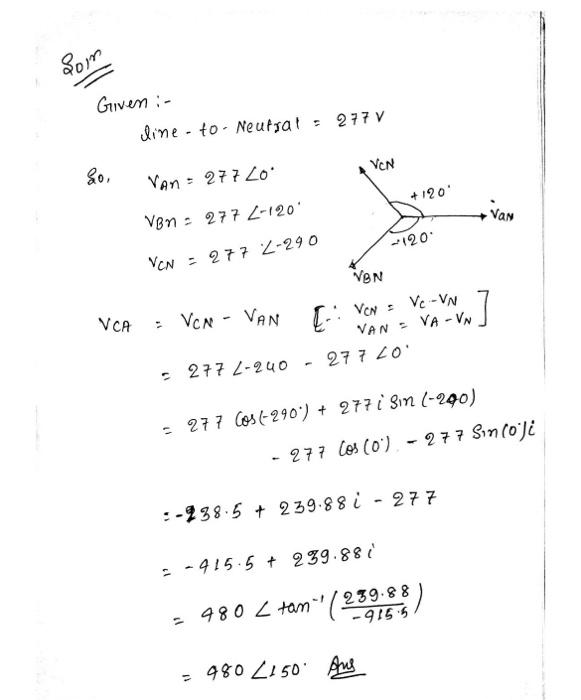 Soln
Given :-
line - to - Neutral = 277 V
So, VAn = 277 ∠0°
VBn = 277 ∠-120°
VCN = 277 ∠-290
VCN
+120°
VAN
-120°
VBN
VCA = VCN - VAN [∵ VCN = VC - VN
VAN = VA - VN ]
= 277 ∠-240 - 277 ∠0°
= 277 Cos(-290°) + 277 i Sin (-240)
- 277 Cos (0°) - 277 Sin (0°) i
= -138.5 + 239.88 i - 277
= -415.5 + 239.88 i
= 480 ∠ tan⁻¹ ( 239.88 / -415.5 )
= 480 ∠150° Ans